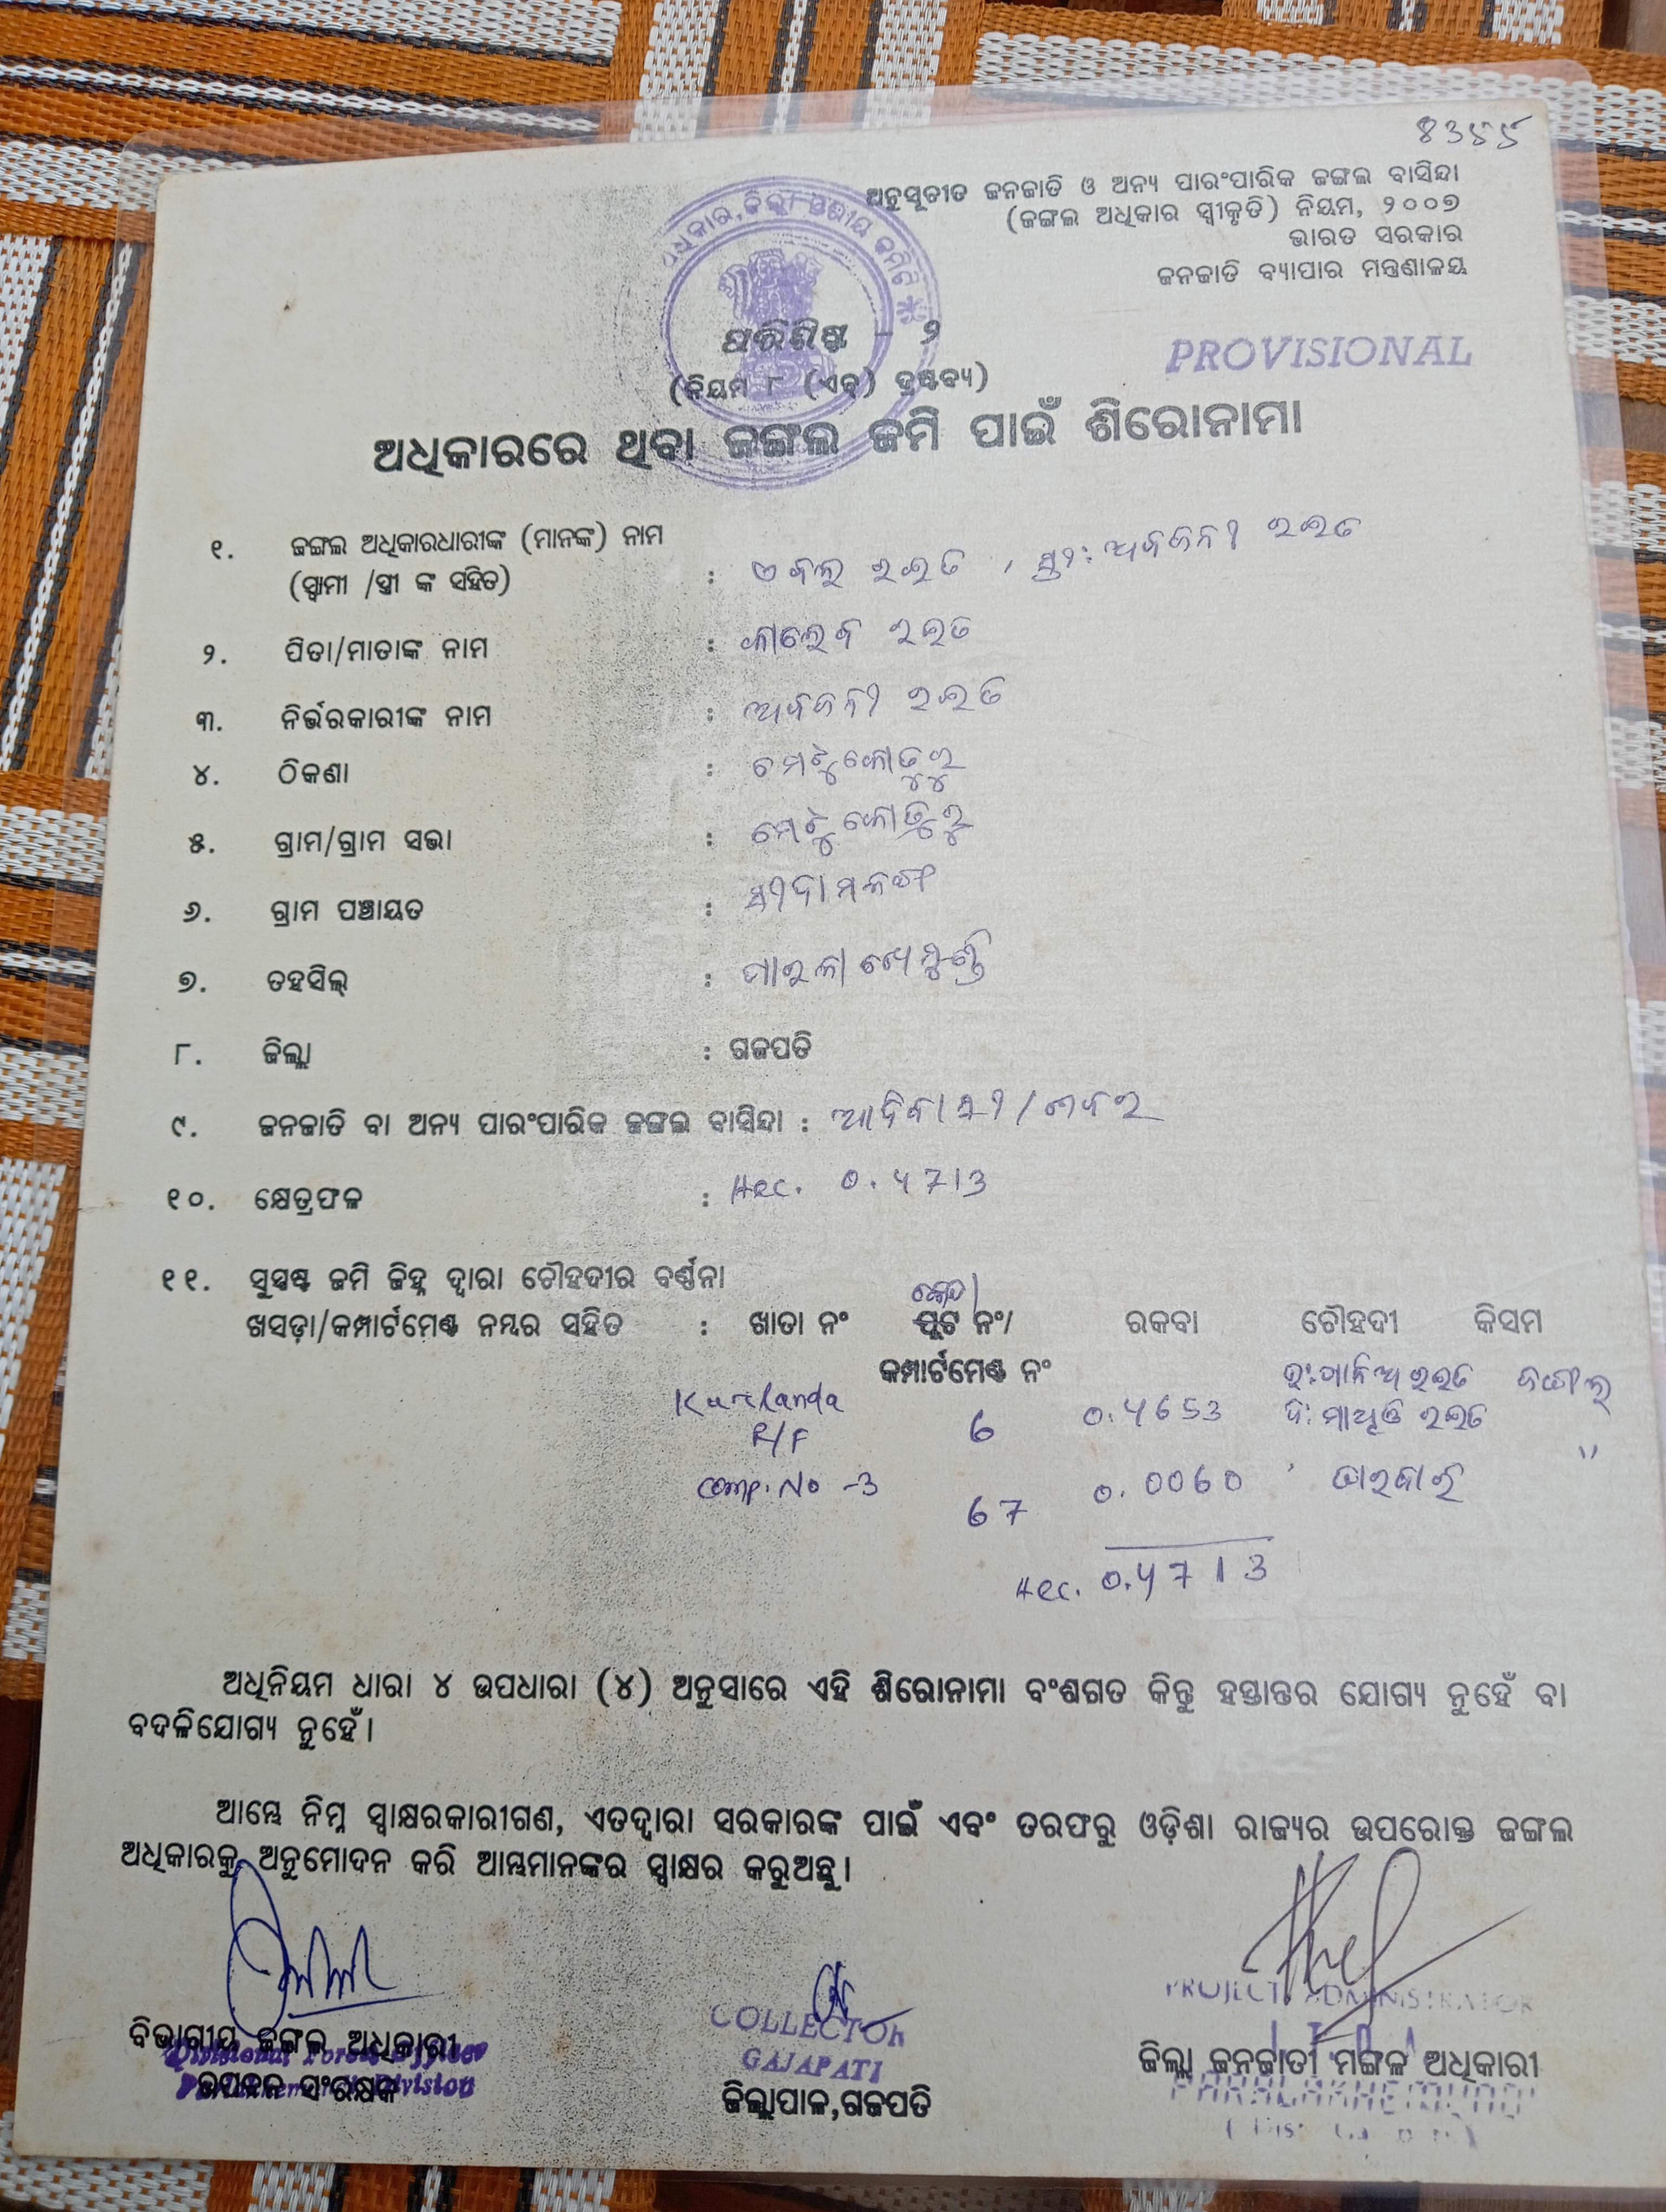 ୪୩୫୫
ଅନୁସୂଚୀତ ଜନଜାତି ଓ ଅନ୍ୟ ପାରଂପାରିକ ଜଙ୍ଗଲ ବାସିନ୍ଦା
(ଜଙ୍ଗଲ ଅଧିକାର ସ୍ୱୀକୃତି) ନିୟମ, ୨୦୦୭
ଭାରତ ସରକାର
ଜନଜାତି ବ୍ୟାପାର ମନ୍ତ୍ରଣାଳୟ
ପରିଶିଷ୍ଟ - ୨
PROVISIONAL
(ନିୟମ ୮ (ଏଚ) ଦ୍ରଷ୍ଟବ୍ୟ)
ଅଧିକାରରେ ଥିବା ଜଙ୍ଗଲ ଜମି ପାଇଁ ଶିରୋନାମା
୧. ଜଙ୍ଗଲ ଅଧିକାରଧାରୀଙ୍କ (ମାନଙ୍କ) ନାମ
(ସ୍ୱାମୀ /ସ୍ତ୍ରୀ ଙ୍କ ସହିତ) : ରଇତ , ସ୍ତ୍ରୀ: ରଇତ
୨. ପିତା/ମାତାଙ୍କ ନାମ : କାଲେବ ରଇତ
୩. ନିର୍ଭରକାରୀଙ୍କ ନାମ : ରଇତ
୪. ଠିକଣା :
୫. ଗ୍ରାମ/ଗ୍ରାମ ସଭା :
୬. ଗ୍ରାମ ପଞ୍ଚାୟତ :
୭. ତହସିଲ୍ : ପାରଳାଖେମୁଣ୍ଡି
୮. ଜିଲ୍ଲା : ଗଜପତି
୯. ଜନଜାତି ବା ଅନ୍ୟ ପାରଂପାରିକ ଜଙ୍ଗଲ ବାସିନ୍ଦା : ଆଦିବାସୀ/ଶବର
୧୦. କ୍ଷେତ୍ରଫଳ : Hec. 0.4713
୧୧. ସୁସ୍ପଷ୍ଟ ଜମି ଚିହ୍ନ ଦ୍ୱାରା ଚୌହଦୀର ବର୍ଣ୍ଣନା
ଖସଡ଼ା/କମ୍ପାର୍ଟମେଣ୍ଟ ନମ୍ବର ସହିତ : ଖାତା ନଂ ପ୍ଲଟ ନଂ/ ରକବା ଚୌହଦୀ କିସମ
କମ୍ପାର୍ଟମେଣ୍ଟ ନଂ
R/F 6 0.4653 ଦ: ରଇତ
Comp. No -3 67 0.0060 "
Hec. 0.4713
ଅଧିନିୟମ ଧାରା ୪ ଉପଧାରା (୪) ଅନୁସାରେ ଏହି ଶିରୋନାମା ବଂଶଗତ କିନ୍ତୁ ହସ୍ତାନ୍ତର ଯୋଗ୍ୟ ନୁହେଁ ବା
ବଦଳିଯୋଗ୍ୟ ନୁହେଁ।
ଆମ୍ଭେ ନିମ୍ନ ସ୍ୱାକ୍ଷରକାରୀଗଣ, ଏତଦ୍ୱାରା ସରକାରଙ୍କ ପାଇଁ ଏବଂ ତରଫରୁ ଓଡ଼ିଶା ରାଜ୍ୟର ଉପରୋକ୍ତ ଜଙ୍ଗଲ
ଅଧିକାରକୁ ଅନୁମୋଦନ କରି ଆମ୍ଭମାନଙ୍କର ସ୍ୱାକ୍ଷର କରୁଅଛୁ।
PROJECT ADMINISTRATOR
COLLECTOR
ବିଭାଗୀୟ ଜଙ୍ଗଲ ଅଧିକାରୀ
Divisional Forest Officer
GAJAPATI
ଜିଲ୍ଲା ଜନଜାତୀ ମଙ୍ଗଳ ଅଧିକାରୀ
ଉପବନ ସଂରକ୍ଷକ
Division
ଜିଲ୍ଲାପାଳ,ଗଜପତି
PARALAKHEMUNDI